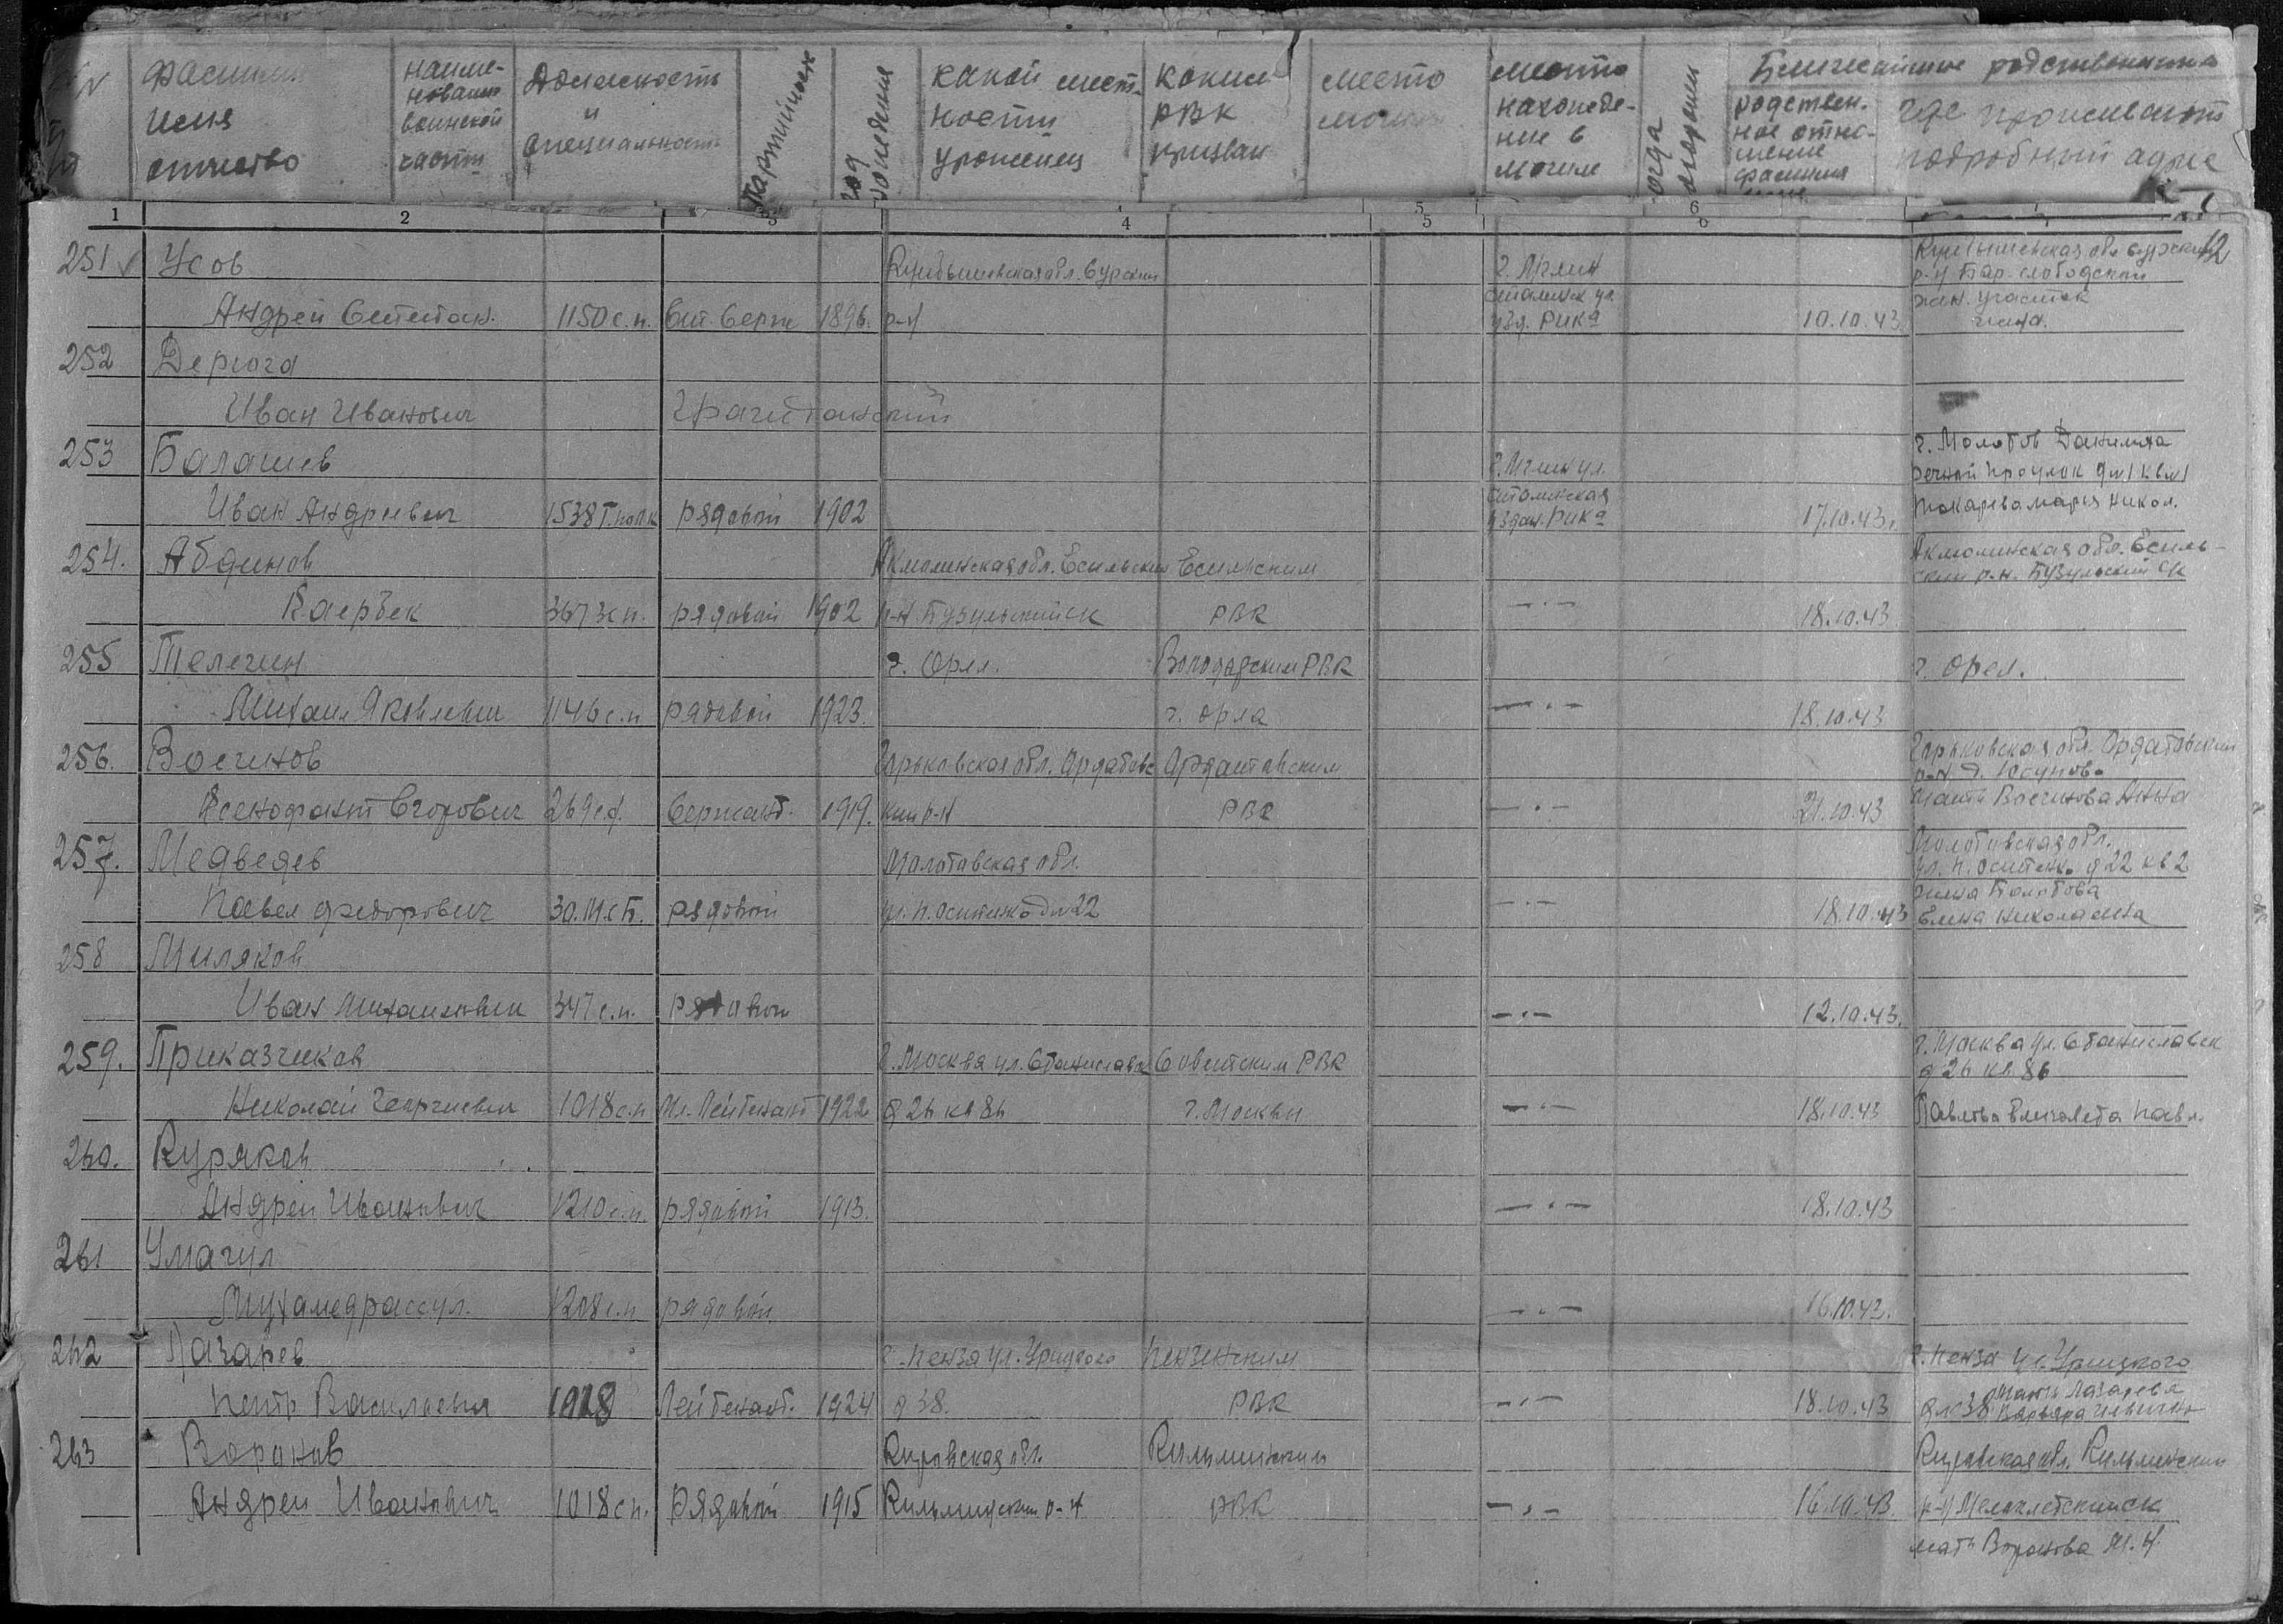 фамилия имя отчество
наименование воинской части
должность и специальность
Партийность
год рождения
какой местности уроженец
каким РВК призван
место
место нахождение в могиле
когда похоронен
Ближайшие родственники
родствен. ное отношение фамилия
где проживает подробный адрес
1 2 3 4 5 5 6 6
12
251 Усов
Куйбышевская обл. Сурский
г. Мглин
Куйбышевская обл Сурский
р-н Бар. слободской
Сталинск ул.
Андрей Степан. 1150 с.п. Ст. Серж 1896. р-н
зд. Рика
10.10.43
жена.
252 Дерюга
Иван Иванович Гражданский
253 Балашев
г. Мглин ул.
г. Молотов Данилиха
речной проулок дм 1 кв 1
Сталинская
Иван Андреевич 1538 Т.полк рядовой 1902
здан. Рика
17.10.43г.
Токарева Мария Никол.
254. Абдинов
Акмолинская обл. Есильский Есильским
Акмолинская обл. Есиль-
ский р-н. Бузулукский с/с
Каербек 367 зсп. рядовой 1902 р-н РВК
—·— 18.10.43
255 Телегин
г. Орел. Володарским РВК
г. Орел.
Михаил Яковлевич 1146 с.п рядовой 1923. г. Орла
—·— 18.10.43
256. Воегинов
Горьковская обл. Ардатовс Ардатовским
Горьковская обл. Ардатовский
р-н д. Юсупово
Ксенофант Егорович 269 сп. Сержант. 1919. кий р-н РВК
—·— 21.10.43
мать Воегинова Анна
257. Медведев
Молотовская обл.
Молотовская обл.
ул. П. Осипенко д 22 кв 2
Павел Федорович 30.М.С.Б. рядовой ул. П. Осипенко дм 22
—·— 18.10.43
жена Болотова
Елена Николаевна
258 Миляков
Иван Михайлович 347 с.п. рядовой
—·— 12.10.43.
259. Приказчиков
г. Москва ул. Станиславск Советским РВК
г. Москва ул. Станиславск
д 26 кв. 86
Николай Георгиевич 1018 с.п Мл. Лейтенант 1922 д 26 кв 86 г. Москвы
—·— 18.10.43
Елизавета Павл.
260. Куряков
Андрей Иванович 1210 с.п. рядовой 1913.
—·— 18.10.43
261 Умагул
Мухамедрассул. 1208 с.п рядовой
—·— 16.10.43.
262 Лазарев
г. Пенза ул. Урицкого Пензенским
г. Пенза ул. Урицкого
Петр Васильевич 1018 Лейтенант. 1924 д 38. РВК
—·— 18.10.43
дм 38 мать Лазарева
Варвара
263 Воронов
Кировская обл. Кильмизским
Кировская обл. Кильмизский
Андрей Иванович 1018 с п. Рядовой 1915 Кильмизский р-н РВК
—·— 16.10.43.
р-н
мать Воронова М. Н